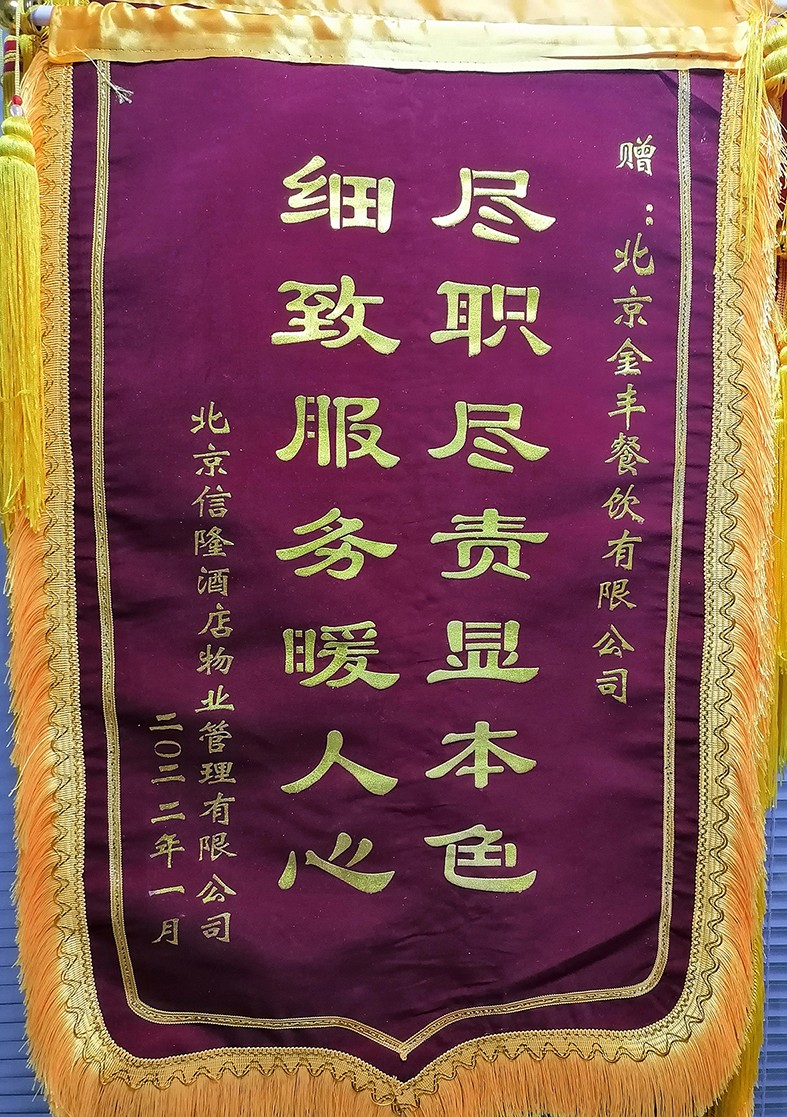 赠：北京金丰餐饮有限公司
尽职尽责显本色
细致服务暖人心
北京信隆酒店物业管理有限公司
二〇二二年一月